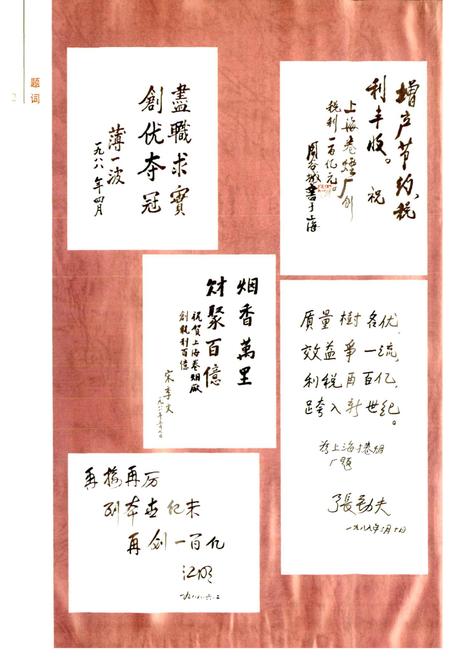 题词
2
盡職求實
創优夺冠
薄一波
一九八八年四月
增产节约、税
利丰收。祝
上海卷烟厂创
税利一百亿元。
周谷城书于上海
烟香萬里
财聚百億
祝賀上海卷烟廠
創税利百億
宋季文
质量樹名优，
效益争一流，
利税酉百亿，
跨入新世纪。
为上海卷烟
厂题
張劲夫
再接再厉
到本世纪末
再创一百亿